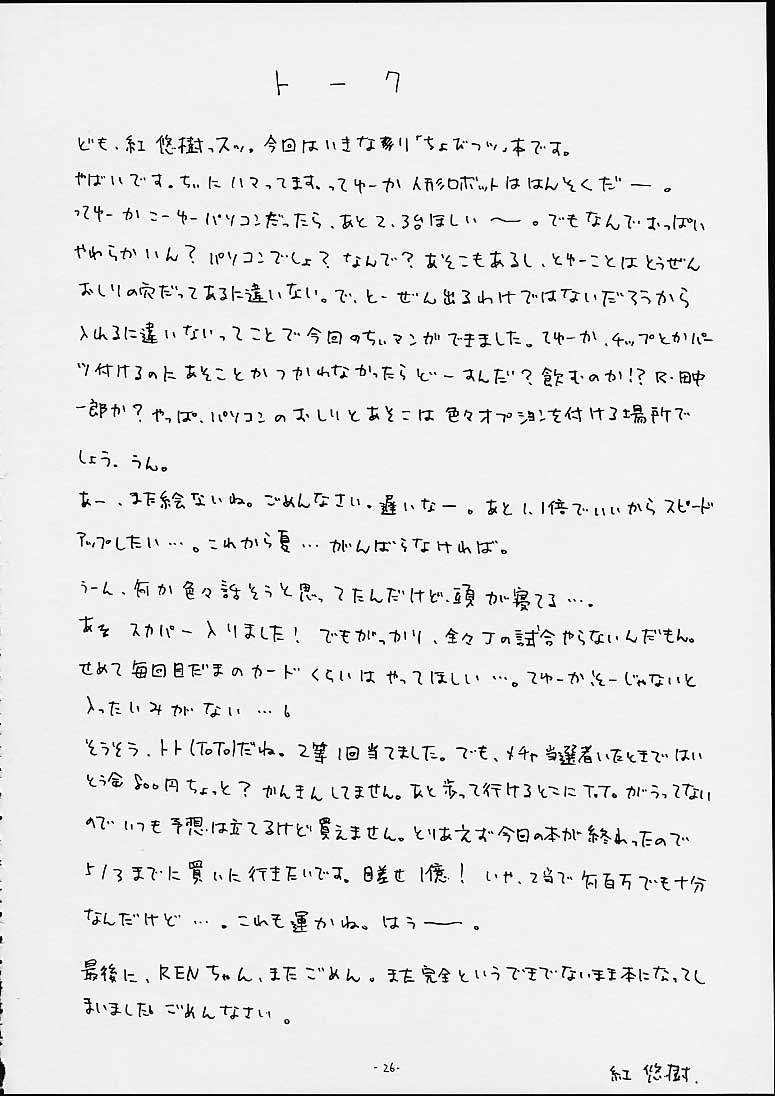 トーク
ども、紅 悠樹っスッ。今回はいきなり「ちょびっツ」本です。
やばいです。ちぃにハマってます、ってゆーか 人形ロボットははんそくだー。
ってゆーかこーゆーパソコンだったら、あと2、3台ほしい〜。でもなんでおっぱい
やわらかいん? パソコンでしょ? なんで? あそこもあるし、とゆーことはとうぜん
おしりの穴だってあるに違いない。で、とーぜん出るわけではないだろうから
入れるに違いないってことで今回のちぃマンガできました。てゆーか、チップとかパー
ツ付けるのにあそことかつかわなかったらどーすんだ? 飲むのか!? R・田中
一郎か? やっぱ、パソコンのおしりとあそこは色々オプションを付ける場所で
しょう。うん。
あー、また絵ないね。ごめんなさい。遅いなー。あと1.1倍でいいからスピード
アップしたい…。これから夏…がんばらなければ。
うーん、何か色々話そうと思ってたんだけど、頭が寝てる…。
あそ スカパー入りました! でもがっかり、全々Jの試合やらないんだもん。
せめて毎回目だまのカードくらいはやってほしい…。てゆーか、そーじゃないと
入ったいみがない…。
そうそう、トト(ToTo)だね。2等1回当てました。でも、メチャ当選者いたときではい
とう金800円ちょっと? かんきんしてません。あと歩って行けるとこにT.T.がうってない
のでいつも予想は立てるけど買えません。とりあえず今回の本が終わったので
5/3までに買いに行きたいです。目差せ1億! いや、2当で何百万でも十分
なんだけど…。これも運かね。はぅ——。
最後に、RENちゃん、またごめん。また完全というできでないまま本になってし
まいました。ごめんなさい。
-26-
紅 悠樹.